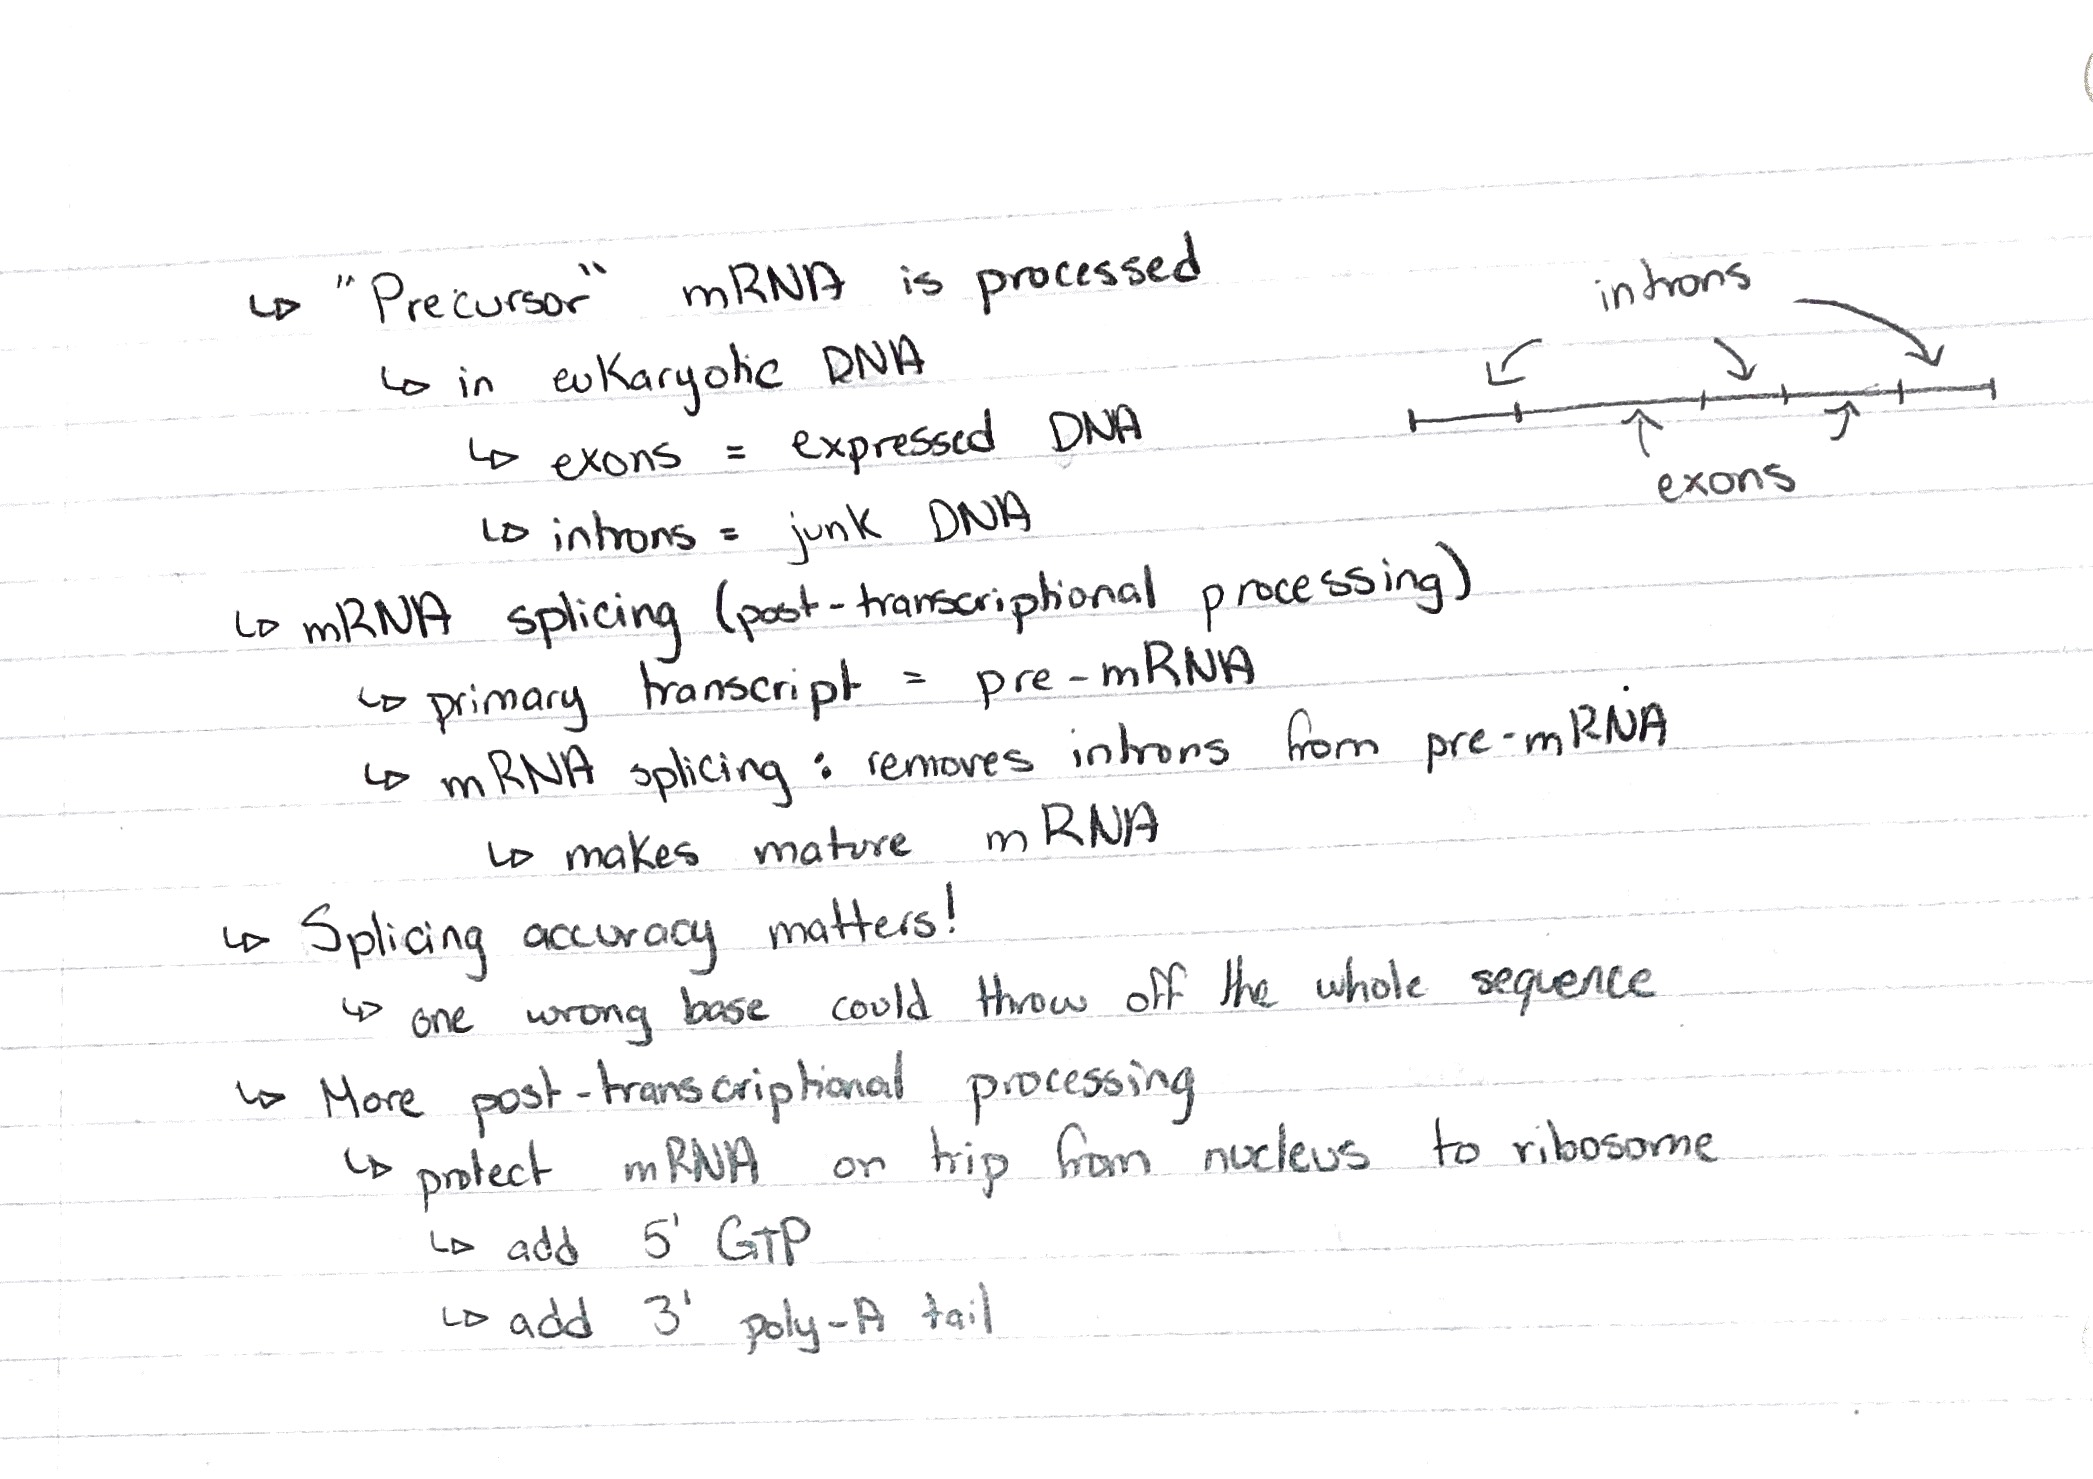 ↳ "Precursor" mRNA is processed
↳ in euKaryotic DNA
↳ exons = expressed DNA
↳ introns = junk DNA
introns
exons
↳ mRNA splicing (post-transcriptional processing)
↳ primary transcript = pre-mRNA
↳ mRNA splicing : removes introns from pre-mRNA
↳ makes mature mRNA
↳ Splicing accuracy matters!
↳ one wrong base could throw off the whole sequence
↳ More post-transcriptional processing
↳ protect mRNA on trip from nucleus to ribosome
↳ add 5' GTP
↳ add 3' poly-A tail